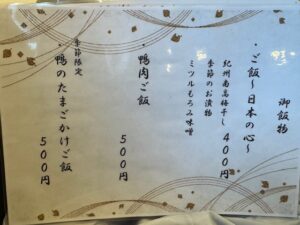 御飯物
・ご飯～日本の心～
紀州南高梅干し 400円
季節のお漬物
ミツルもろみ味噌
・鴨肉ご飯 500円
季節限定
・鴨のたまごかけご飯 500円